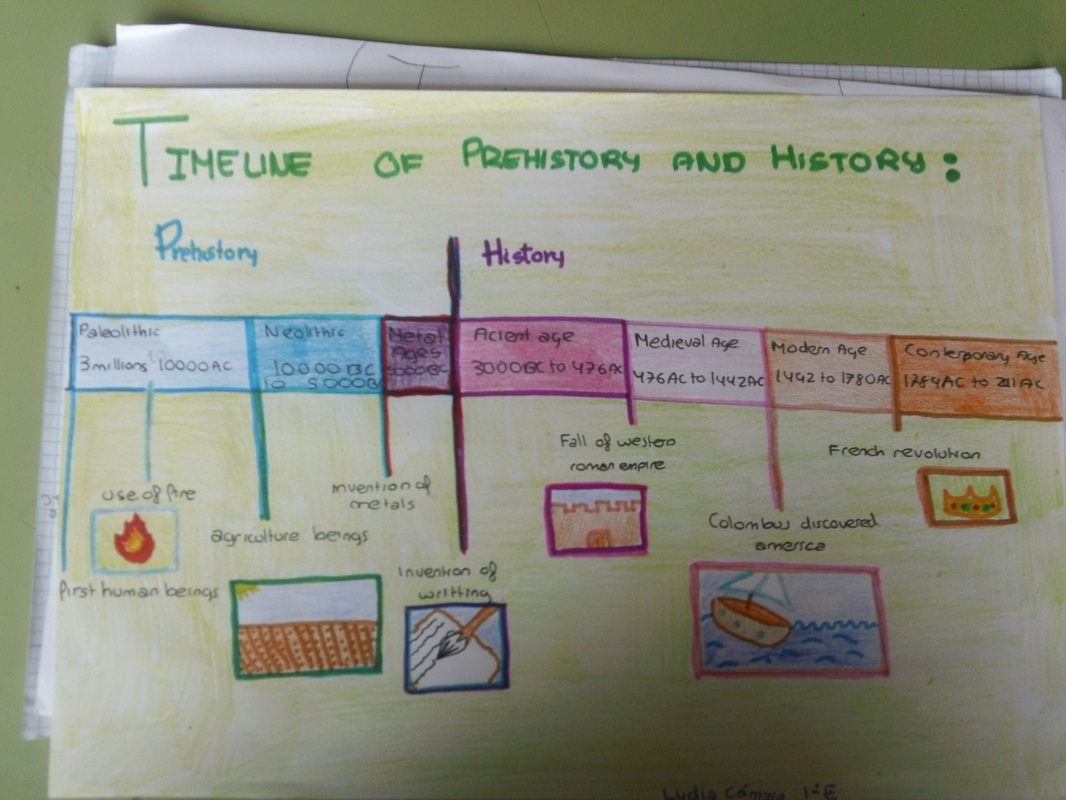 TIMELINE OF PREHISTORY AND HISTORY:
Prehistory
History
Paleolithic
3 millions 10000 AC
Neolithic
10000 BC
to 5.000B
Metal
Ages
5000BC
Acient age
3000BC to 476AC
Medieval Age
476AC to 1442AC
Modern Age
1492 to 1780AC
Contemporary Age
1789AC to
use of fire
First human beings
agriculture beings
Invention of
metals
Invention of
writting
Fall of western
roman empire
Colombus discovered
america
French revolution
Lydia 1ºE